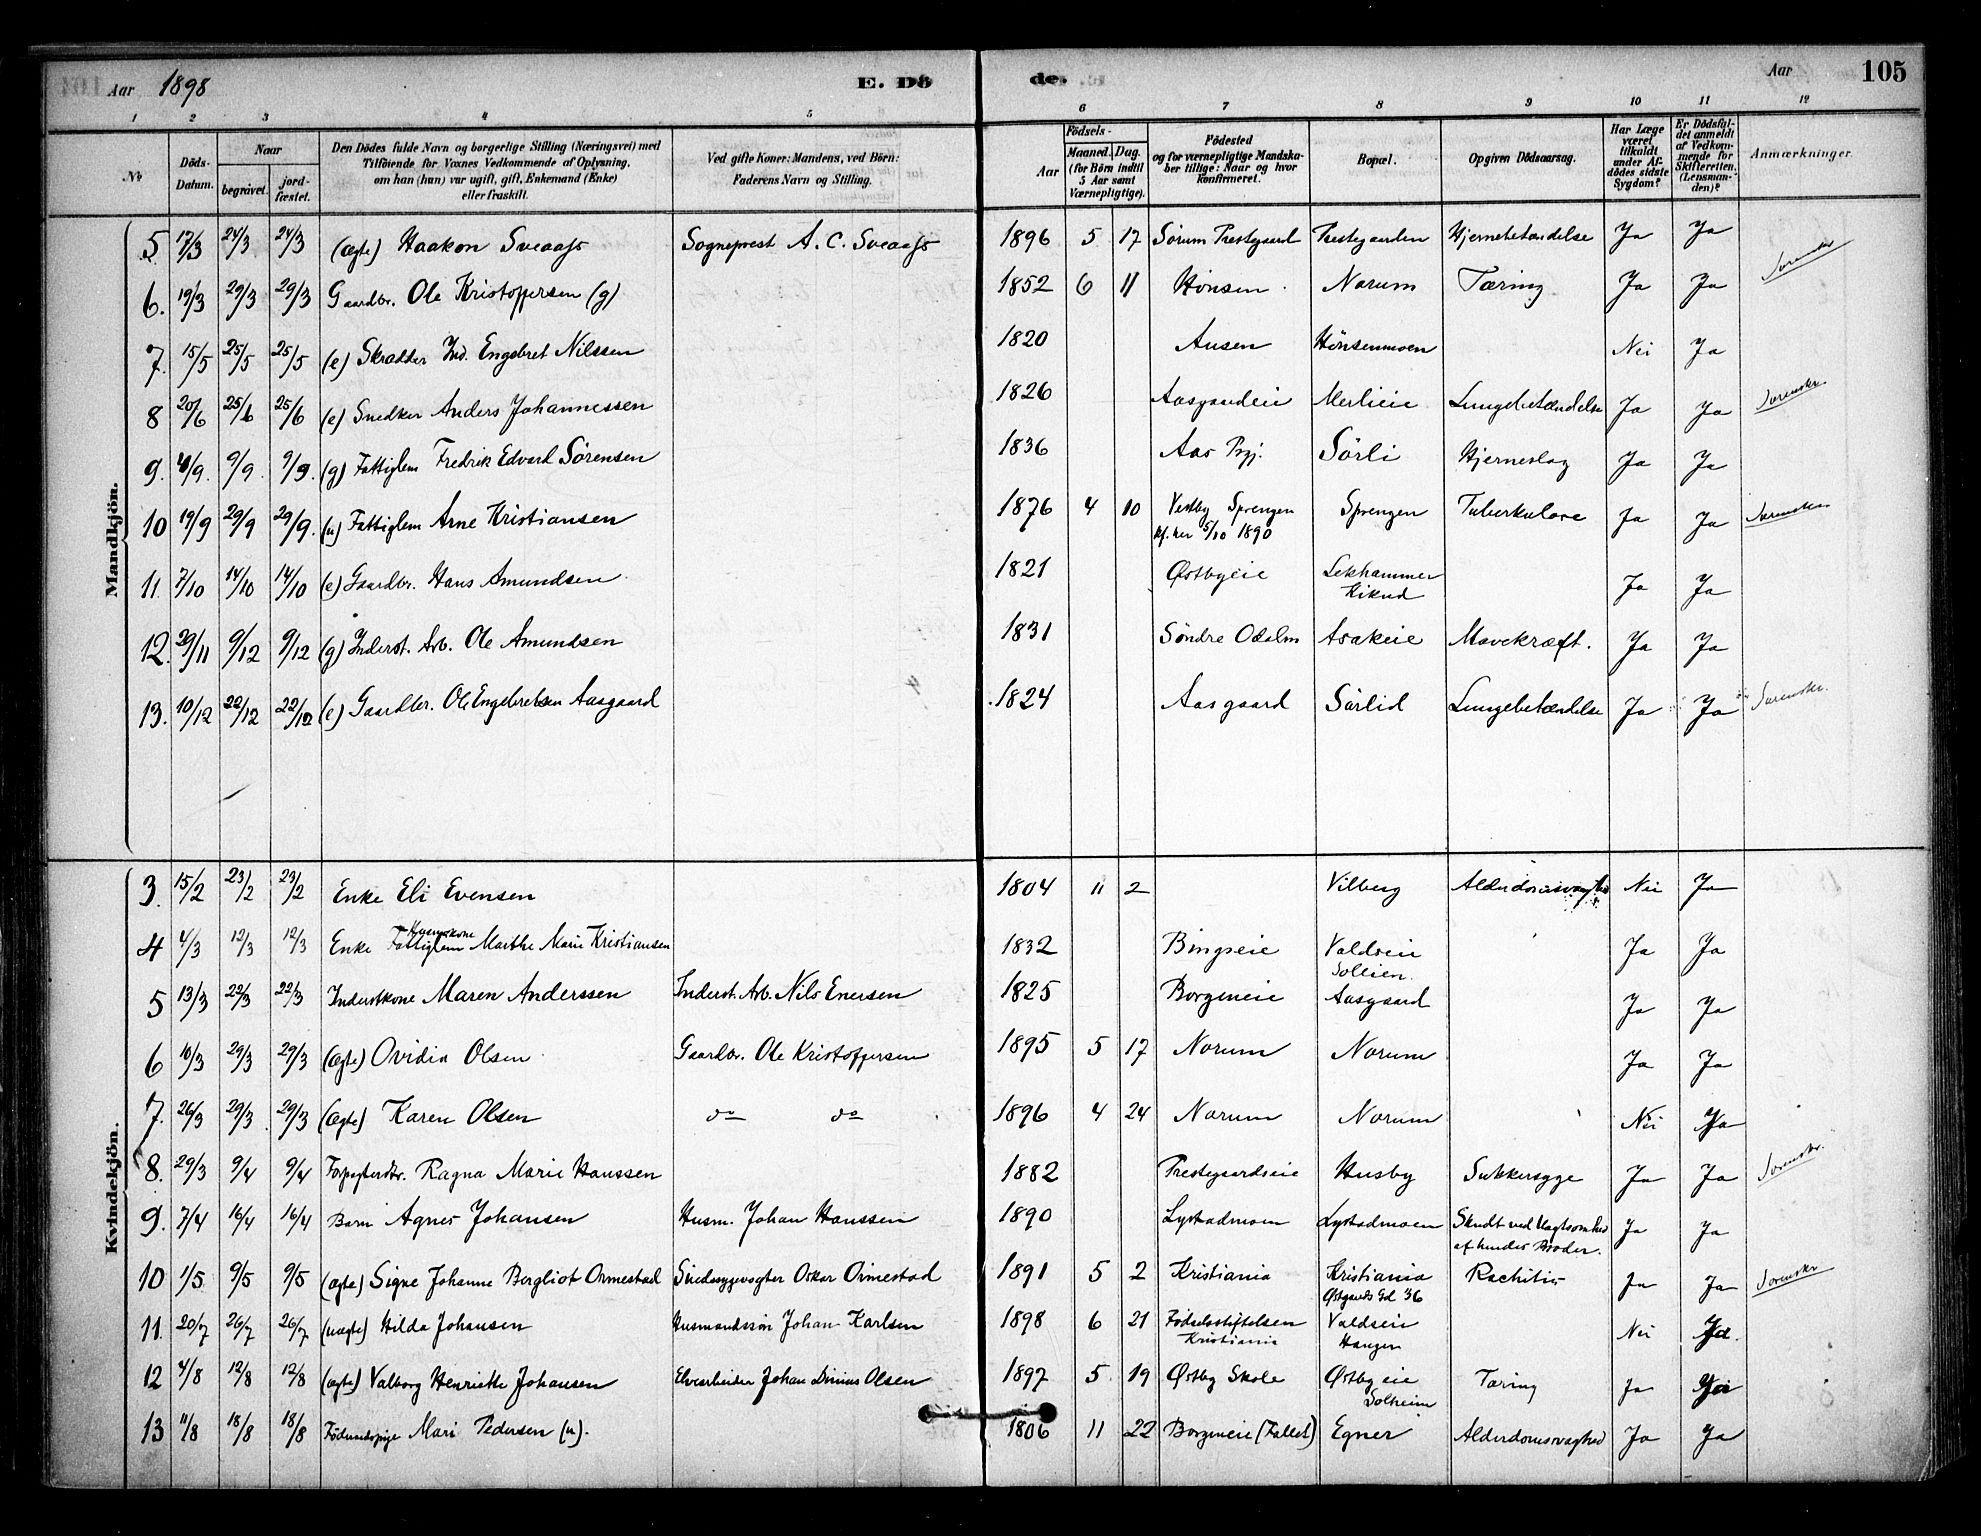 Aar 1898 E. Dö de. Aar 105
1 2 3 4 5 6 7 8 9 10 11 12
№ Döds-Datum. Naar begravet. jord-fæstet. Den Dödes fulde Navn og borgerlige Stilling (Næringsvei) med Tilföiende for Voxnes Vedkommende af Oplysning, om han (hun) var ugift, gift, Enkemand (Enke) eller fraskilt. Ved gifte Koner: Mandens, ved Börn: Faderens Navn og Stilling. Födsels- Aar Maaned. Dag. (for Börn indtil 5 Aar samt Værnepligtige). Födested og for værnepligtige Mandskaber tillige: Naar og hvor konfirmeret. Bopæl. Opgiven Dödsaarsag. Har Læge været tilkaldt under Afdödes sidste Sygdom? Er Dödsfaldet anmeldt af Vedkommende for Skifteretten. (Lensmanden)? Anmærkninger.
Mandkjön.
5. 17/3 24/3 24/3 (ægte) Haakon Sveaass Sogneprest A. C. Sveaass 1896 5 17 Sørum Prestegaard Prestegaarden Hjernebetændelse Ja Ja
6. 19/3 29/3 29/3 Gaardbr. Ole Kristoffersen (g) 1852 6 11 Hønsen Norum Tæring Ja Ja Sorenskr.
7. 15/5 25/5 25/5 (e) Skrædder Ind. Engebret Nilssen 1820 Ausen Hønsenmoen Nei Ja
8 20/6 25/6 25/6 (e) Snedker Anders Johannessen 1826 Aasgaardeie Merlieie Lungebetændelse Ja Ja Sorenskr.
9. 4/9. 9/9. 9/9. (g) Fattiglem Fredrik Edvard Sörensen 1836 Aas Pgj. Sörli Hjerneslag Ja Ja
10 19/9 29/9 29/9. (u) Fattiglem Arne Kristiansen 1876 4 10 Vestby Sprengen Sprengen Tuberkulose Ja Ja Sorenskr.
kf. her 5/10 1890
11. 7/10 14/10 14/10 (e) Gaardbr. Hans Amundsen 1821 Østbyeie Lekhammer Ja Ja
Kikud
12. 29/11 9/12 9/12 (g) Inderst. Arb. Ole Amundsen 1831 Søndre Odalen Asakeie Mavekræft. Ja Ja
13. 10/12 22/12 22/12 (e) Gaardbr. Ole Engebretsen Aasgaard 1824 Aasgaard Sørlid Lungebetændelse Ja Ja Sorenskr.
Kvindekjön.
3. 15/2 23/2 23/2 Enke Eli Evensen 1804 11 2 Vilberg Alderdomsvaghed Nei Ja
Husmkone
4 4/3 12/3 12/3 Enke Fattiglem Marthe Marie Kristiansen 1832 Bingseie Valdseie Ja Ja
Sollien.
5 13/3 22/3 22/3 Inderstkone Maren Anderssen Inderst. Arb. Nils Enersen 1825 Borgeneie Aasgaard Ja Ja
6 10/3 29/3 29/3 (ægte) Ovidia Olsen Gaardbr. Ole Kristoffersen 1895 5 17 Norum Norum Ja Ja
7. 26/3 29/3. 29/3 (ægte) Karen Olsen do do 1896 4 24 Norum Norum Nei Ja
8. 29/3 9/4 9/4 Forpagterdtr. Ragna Marie Hanssen 1882 Prestegaardseie Husby Sukkersyge Ja Ja Sorenskr.
9. 7/4 16/4 16/4 Barn Agnes Johansen Husm. Johan Hanssen 1890 Lystadmoen Lystadmoen Skudt ved Uagtsomhed Ja Ja
af hendes Broder.
10 1/5 9/5 9/5 (ægte) Signe Johanne Bergliot Ormestad Sindssygevogter Oskar Ormestad 1891 5 2 Kristiania Kristiania Rachitis Ja Ja Sorenskr
Østgaards Gd 36
11. 20/7 26/7 26/7 (uægte) Hilda Johansen Husmandssøn Johan Karlsen 1898 6 21 Fødselsstiftelsen Valdseie Nei Ja.
Kristiania Haugen
12 4/8 12/8 12/8 (ægte) Valborg Henriette Johansen Elvearbeider Johan Dinius Olsen 1897 5 19 Østby Skole Østby eie Tæring Ja Ja
Solheim
13 11/8 18/8 18/8 Föderaadspige Mari Pedersen (u). 1806 11 22 Borgeneie (Fallet) Egner Alderdomsvaghed Ja Ja